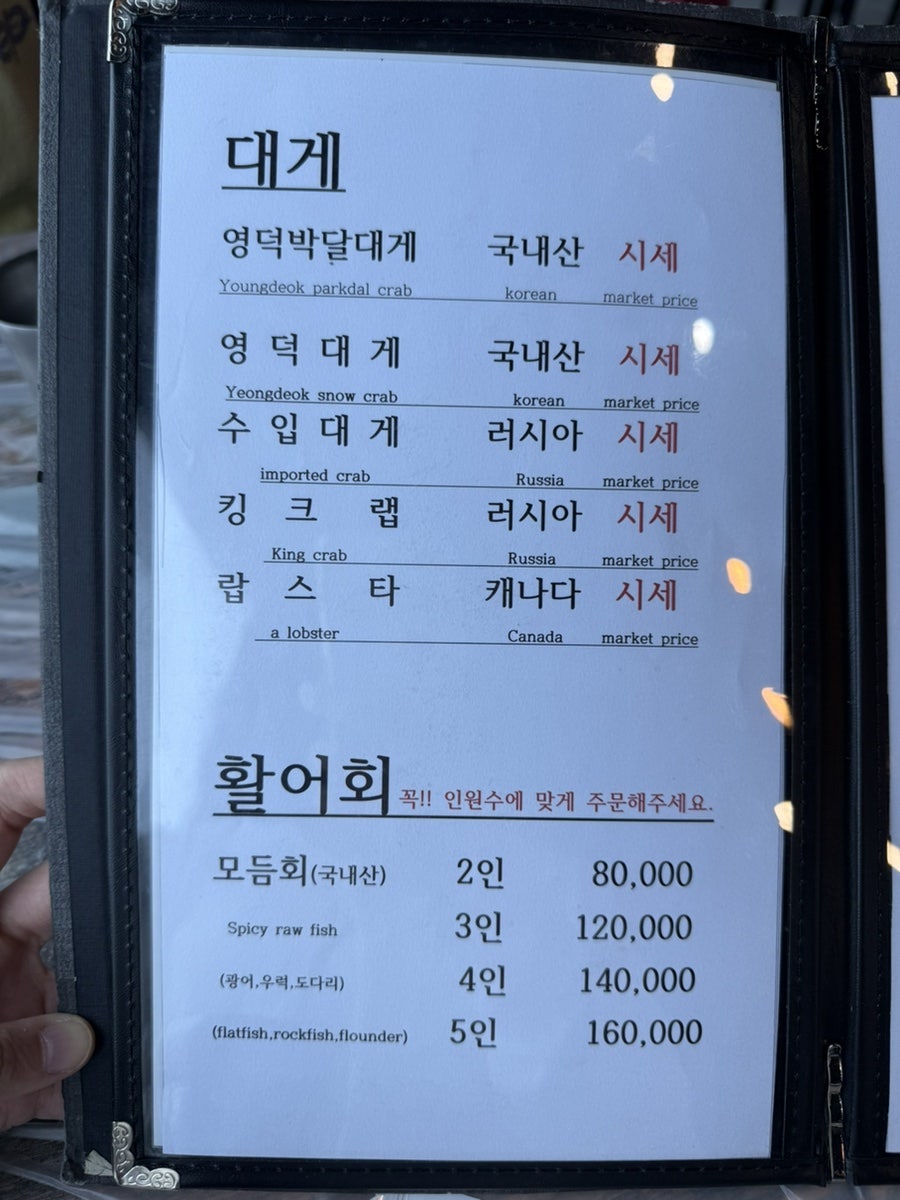 대게
영덕박달대게 국내산 시세
Youngdeok parkdal crab korean market price
영 덕 대 게 국내산 시세
Yeongdeok snow crab korean market price
수 입 대 게 러시아 시세
imported crab Russia market price
킹 크 랩 러시아 시세
King crab Russia market price
랍 스 타 캐나다 시세
a lobster Canada market price
활어회 꼭!! 인원수에 맞게 주문해주세요.
모듬회(국내산) 2인 80,000
Spicy raw fish 3인 120,000
(광어,우럭,도다리) 4인 140,000
(flatfish,rockfish,flounder) 5인 160,000